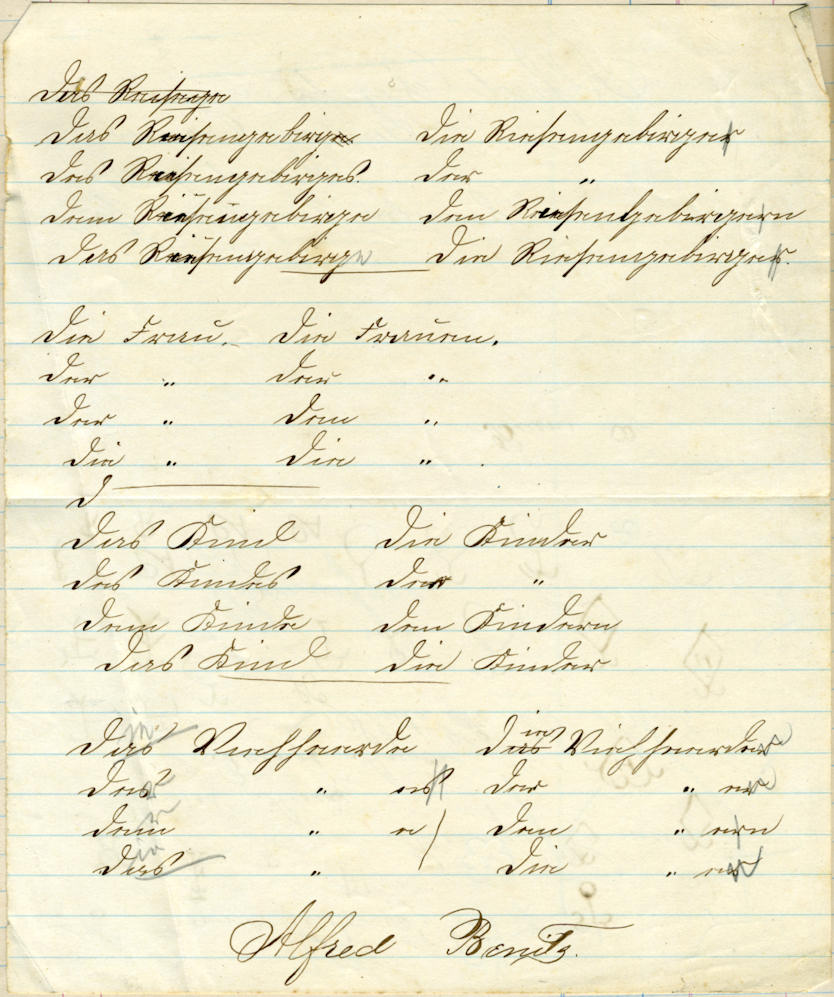 Das Reisenge
Das Riesengebirge Die Riesengebirger
Des Riesengebirges. der "
Dem Riesengebirge den Riesengebirgern
Das Riesengebirge die Riesengebirger.
Die Frau. Die Frauen.
der " der "
der " den "
die " die "
D
Das Kind Die Kinder
des Kindes der "
dem Kinde den Kindern
das Kind die Kinder
Das Viehheerde die Viehheerder
des " es der " er
dem " e den " ern
das " die " er
Alfred Benitz.